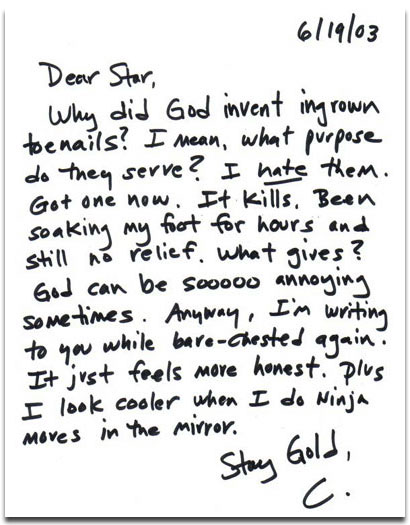 6/19/03
Dear Star,
Why did God invent ingrown
toenails? I mean, what purpose
do they serve? I hate them.
Got one now. It kills. Been
soaking my foot for hours and
still no relief. What gives?
God can be sooooo annoying
sometimes. Anyway, I'm writing
to you while bare-chested again.
It just feels more honest. Plus
I look cooler when I do Ninja
moves in the mirror.
Stay Gold,
C.